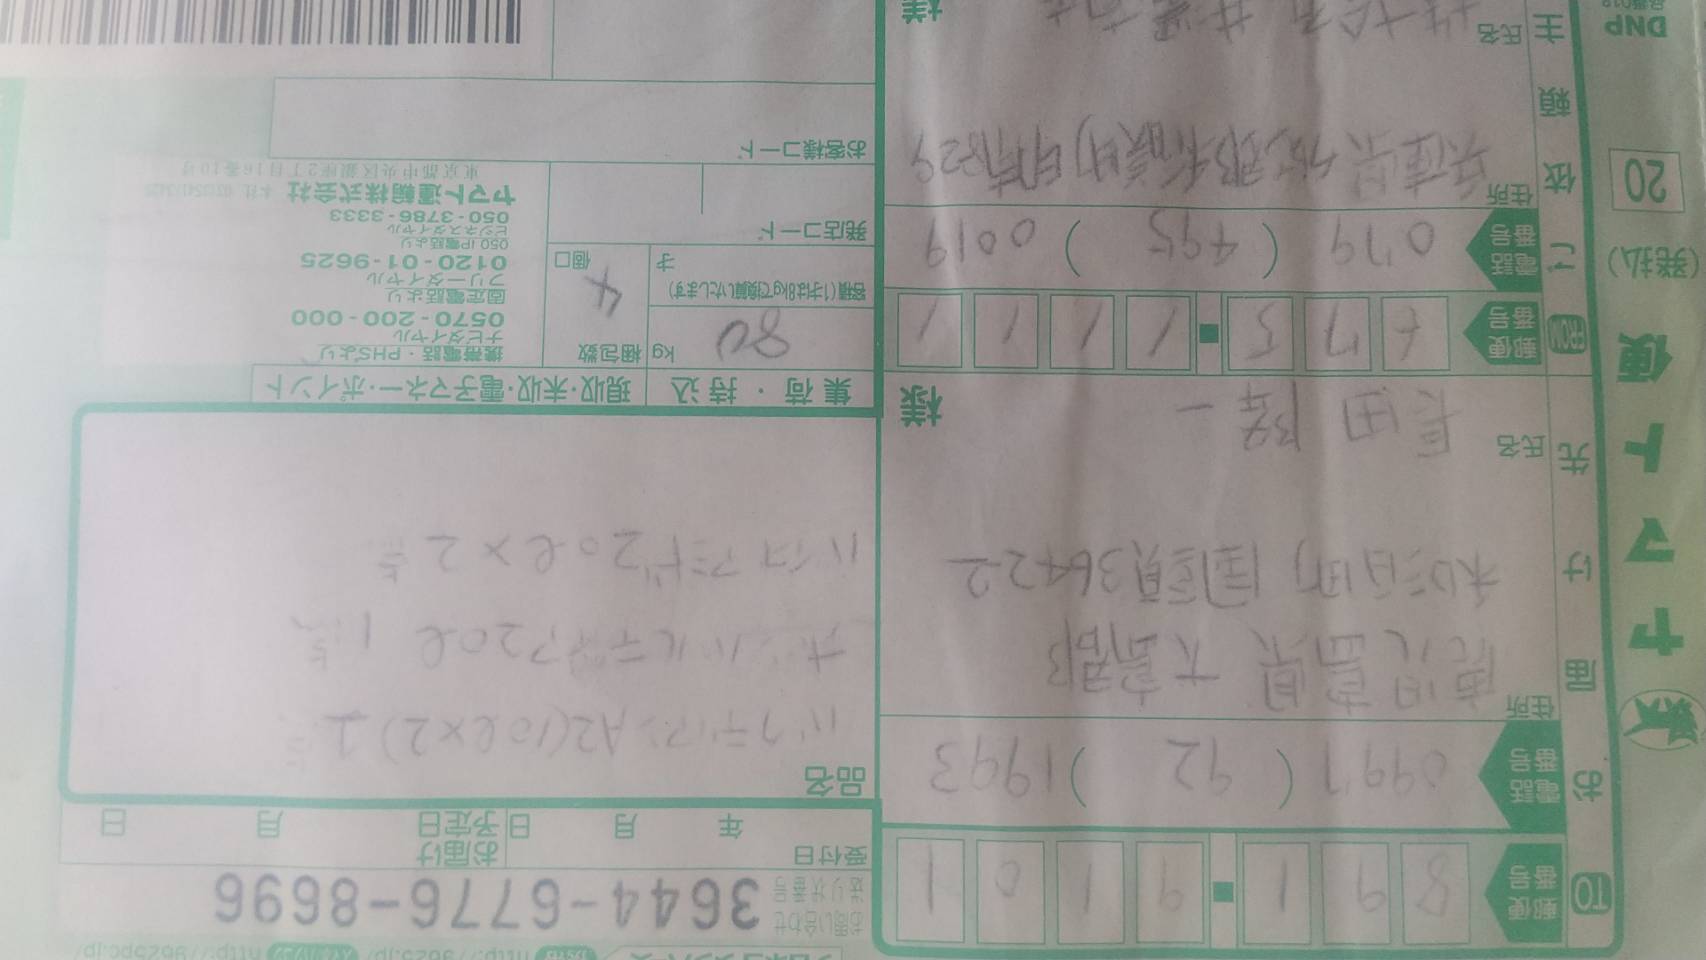 お問い合わせ
送り状番号
3644-6776-8696
受付日
年 月 日
お届け
予定日
月 日
TO
郵便
番号
891-9101
お届け先
電話
番号
0997 (92) 1993
住所
鹿児島県 大島郡
和泊町 国頭3642-2
氏名
長田 隆一
様
品名
バクテリアンA2(10ℓ×2) 1
20ℓ 1
20ℓ×2
ヤマト便
(発払)
20
FROM
郵便
番号
675-1111
ご依頼主
電話
番号
079 (495) 0019
住所
兵庫県加古郡稲美町印南
氏名
様
集荷・持込
現収・未収・電子マネー・ポイント
80 kg
容積(1才は8kgで換算いたします)
才
梱包数
4
個口
発店コード
お客様コード
携帯電話・PHSより
ナビダイヤル
0570-200-000
固定電話より
フリーダイヤル
0120-01-9625
050 IP電話より
ビジネスダイヤル
050-3786-3333
ヤマト運輸株式会社
東京都中央区銀座2丁目16番10号
DNP